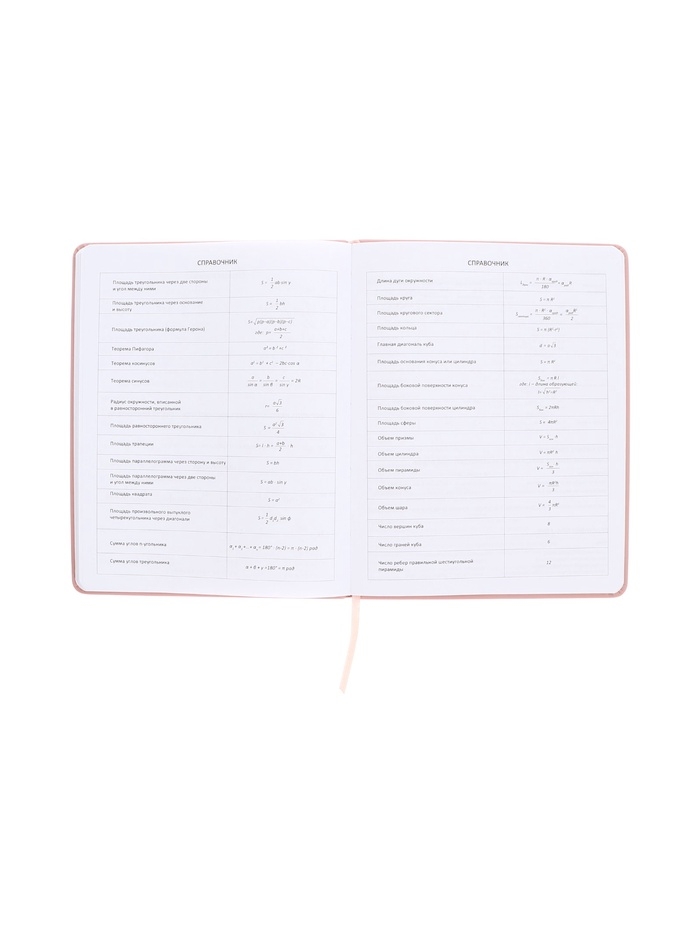 СПРАВОЧНИК
Площадь треугольника через две стороны
и угол между ними
S = 1/2 ab sin γ
Площадь треугольника через основание
и высоту
S = 1/2 bh
Площадь треугольника (формула Герона)
S=√p(p-a)(p-b)(p-c)
где p= a+b+c/2
Теорема Пифагора
Теорема косинусов
a² = b² + c² - 2bc cos α
Теорема синусов
a/sin α = b/sin β = c/sin γ = 2R
Радиус окружности, вписанной
в равносторонний треугольник
r= a√3/6
Площадь равностороннего треугольника
S = a²√3/4
Площадь трапеции
S=l · h = a+b/2 · h
Площадь параллелограмма через сторону и высоту
S = bh
Площадь параллелограмма через две стороны
и угол между ними
S = ab · sin γ
Площадь квадрата
S = a²
Площадь произвольного выпуклого
четырехугольника через диагонали
S = 1/2 d₁d₂ sin φ
Сумма углов n-угольника
Сумма углов треугольника
α + β + γ =180° = π рад
СПРАВОЧНИК
Длина дуги окружности
Площадь круга
S = π R²
Площадь кругового сектора
Площадь кольца
S = π (R²-r²)
Главная диагональ куба
d = a√3
Площадь основания конуса или цилиндра
S = π R²
Площадь боковой поверхности конуса
где: l - длина образующей:
Площадь боковой поверхности цилиндра
Sбок = 2πRh
Площадь сферы
S = 4πR²
Объем призмы
V = Sосн h
Объем цилиндра
V = πR² h
Объем пирамиды
V = Sосн h/3
Объем конуса
V = πR²h/3
Объем шара
V = 4/3 πR³
Число вершин куба
8
Число граней куба
6
Число ребер правильной шестиугольной
пирамиды
12